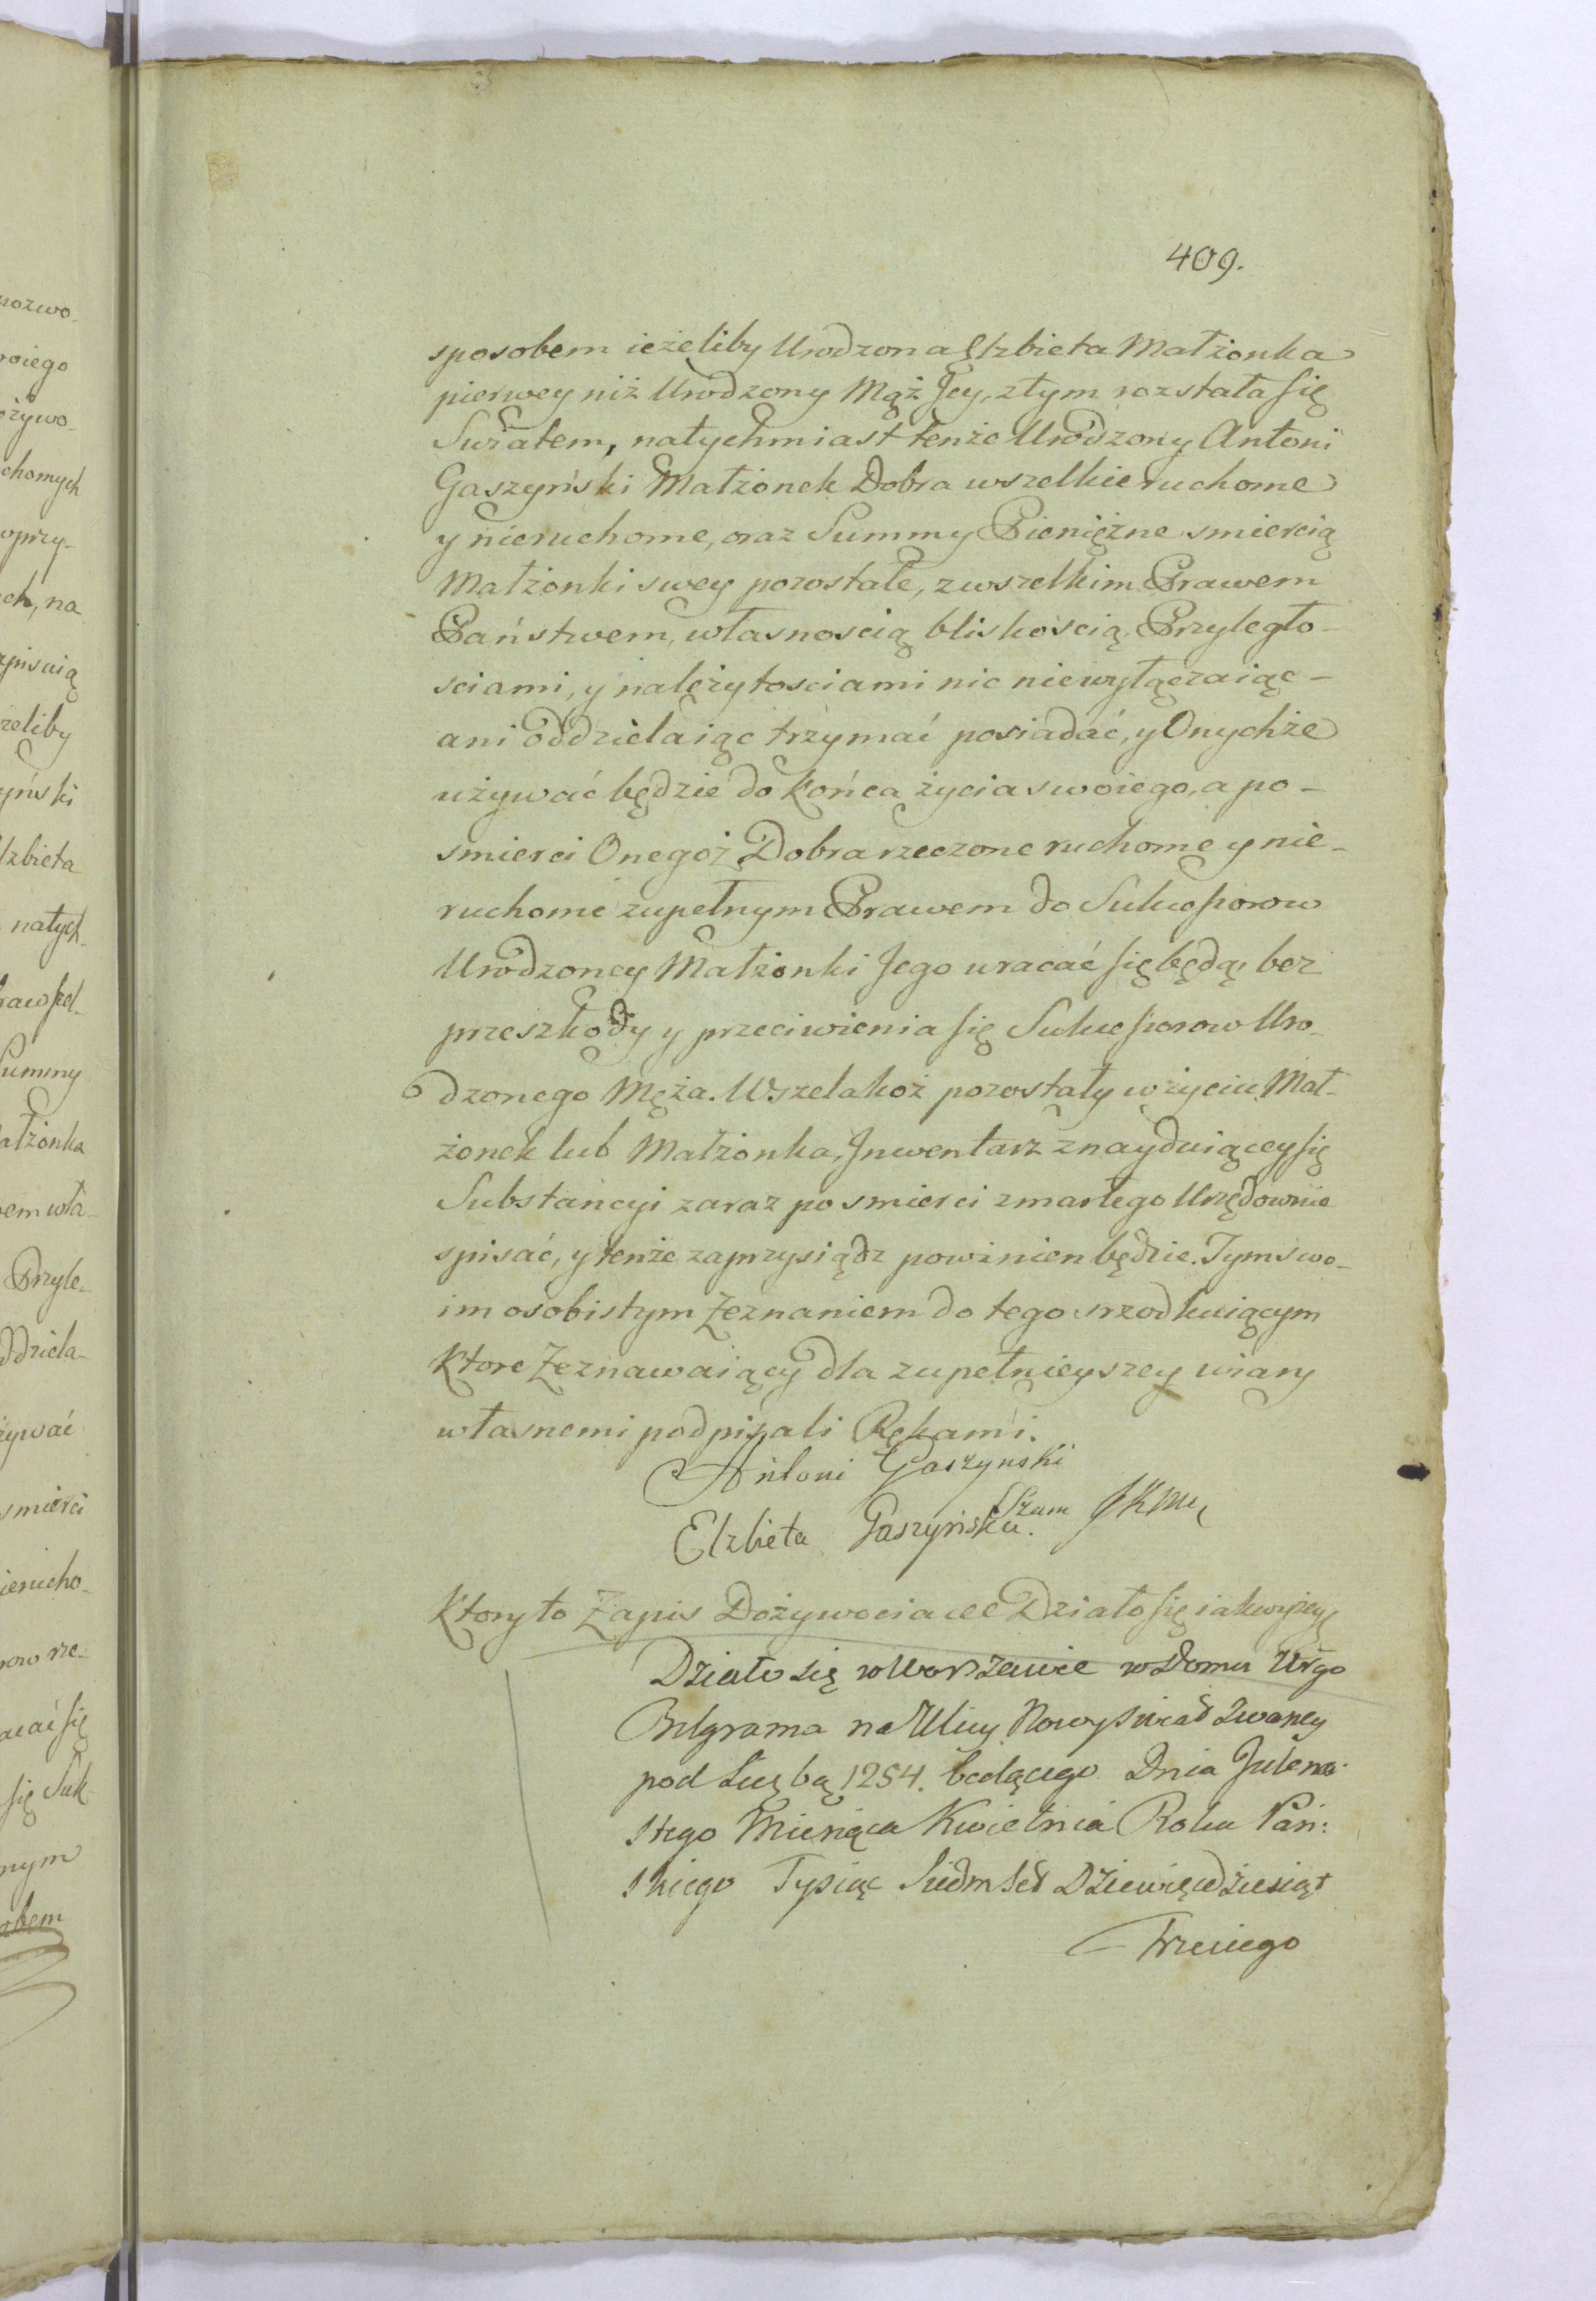 409.
sposobem ieżeliby Urodzona Elżbieta Małżonka
pierwey niż Urodzony Mąż Jey, z tym rozstała się
Swiatem, natychmiast tenże Urodzony Antoni
Gaszyński Małżonek Dobra wszelkie ruchome
y nieruchome, oraz Summy Pieniężne smiercią
Małżonki swey pozostałe, z wszelkim Prawem
Państwem, własnoscią bliskoscią, Przyległo-
sciami, y należytosciami nic niewyłączaiąc -
ani oddzielaiąc trzymać posiadać, y Onychże
używać będzie do końca życia swoiego, a po -
smierci Onegoż Dobra rzeczone ruchome y nie -
ruchome zupełnym Prawem do Sukcessorow
Urodzoney Małżonki Jego wracać się będą, bez
przeszkody y przeciwienia się Sukcessorow Uro-
dzonego Męża. Wszelakoż pozostały w życiu Mał-
żonek lub Małżonka, Jnwentarz znayduiącey się
Substancyi zaraz po smierci zmarłego Urzędownie
spisać, y tenże zaprzysiądz powinien będzie. Tym swo-
im osobistym Zeznaniem do tego srzodkuiącym
Ktore Zeznawaiący dla zupełnieyszey wiary
własnemi podpisali Rękami.
Antoni Gaszynski
Szam JKMci
Elzbieta Gaszyńska.
Ktory to Zapis Dożywocia etc Działo się iak wyżey
Działo się w Warszawie w Domu Urgo
na Ulicy Nowy Swiat zwaney
pod Liczbą 1254. będącego Dnia Jutena-
stego Miesiąca Kwietnia Roku Pań:
skiego Tysiąc Siedmset Dziewięćdziesiąt
Trzeciego
nozwo-
woiego
ożywo-
chomych
oprzy-
ch, na
zeliby
yński
lżbieta
natych-
Summy
ałżonka
em wła-
Przyle-
ddziela-
żywać
smierci
ienicho-
row rze-
acać się
się Suk-
nym
obem